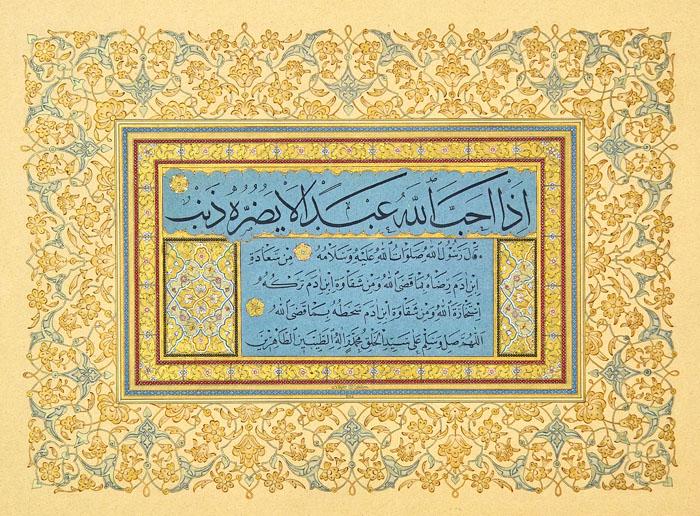 اِذَا اَحَبَّ اللّٰهُ عَبْدًا لَا يَضُرُّهُ ذَنْبٌ
قَالَ رَسُولُ اللّٰهِ صَلَوَاتُ اللّٰهِ عَلَيْهِ وَسَلَامُهُ مِنْ سَعَادَةِ
ابْنِ اٰدَمَ رِضَاهُ بِمَا قَضَى اللّٰهُ وَمِنْ شَقَاوَةِ ابْنِ اٰدَمَ تَرْكُهُ
اسْتِخَارَةَ اللّٰهِ وَمِنْ شَقَاوَةِ ابْنِ اٰدَمَ سَخَطُهُ بِمَا قَضَى اللّٰهُ
اَللّٰهُمَّ صَلِّ وَسَلِّمْ عَلَى سَيِّدِ الْخَلْقِ مُحَمَّدٍ وَاٰلِهِ الطَّيِّبِينَ الطَّاهِرِينَ